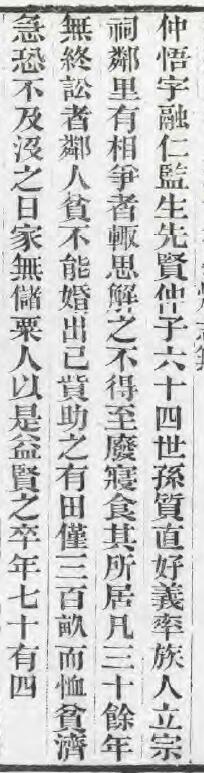 仲悟字融仁監生先賢仲子六十四世孫質直好義率族人立宗
祠鄰里有相爭者輙思解之不得至廢寢食其所居凡三十餘年
無終訟者鄰人貧不能婚出已貲助之有田僅三百畝而恤貧濟
急恐不及沒之日家無儲粟人以是益賢之卒年七十有四